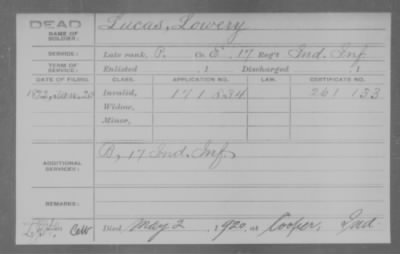 DEAD
NAME OF SOLDIER: Lucas, Lowery
SERVICE: Late rank, P. Co. E, 17 Reg't Ind. Inf.
TERM OF SERVICE: Enlisted , 1 Discharged , 1
DATE OF FILING. CLASS. APPLICATION NO. LAW. CERTIFICATE NO.
1872, Jan. 20 Invalid, 171 534 261 133
Widow,
Minor,
ADDITIONAL SERVICES: B, 17 Ind. Inf.
REMARKS:
C&W Died May 2, 1920, at Cooper, Ind.